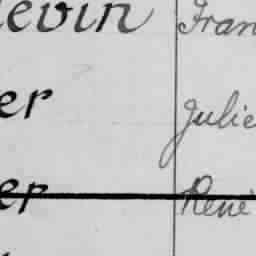 levin Fran
er Julie
er René